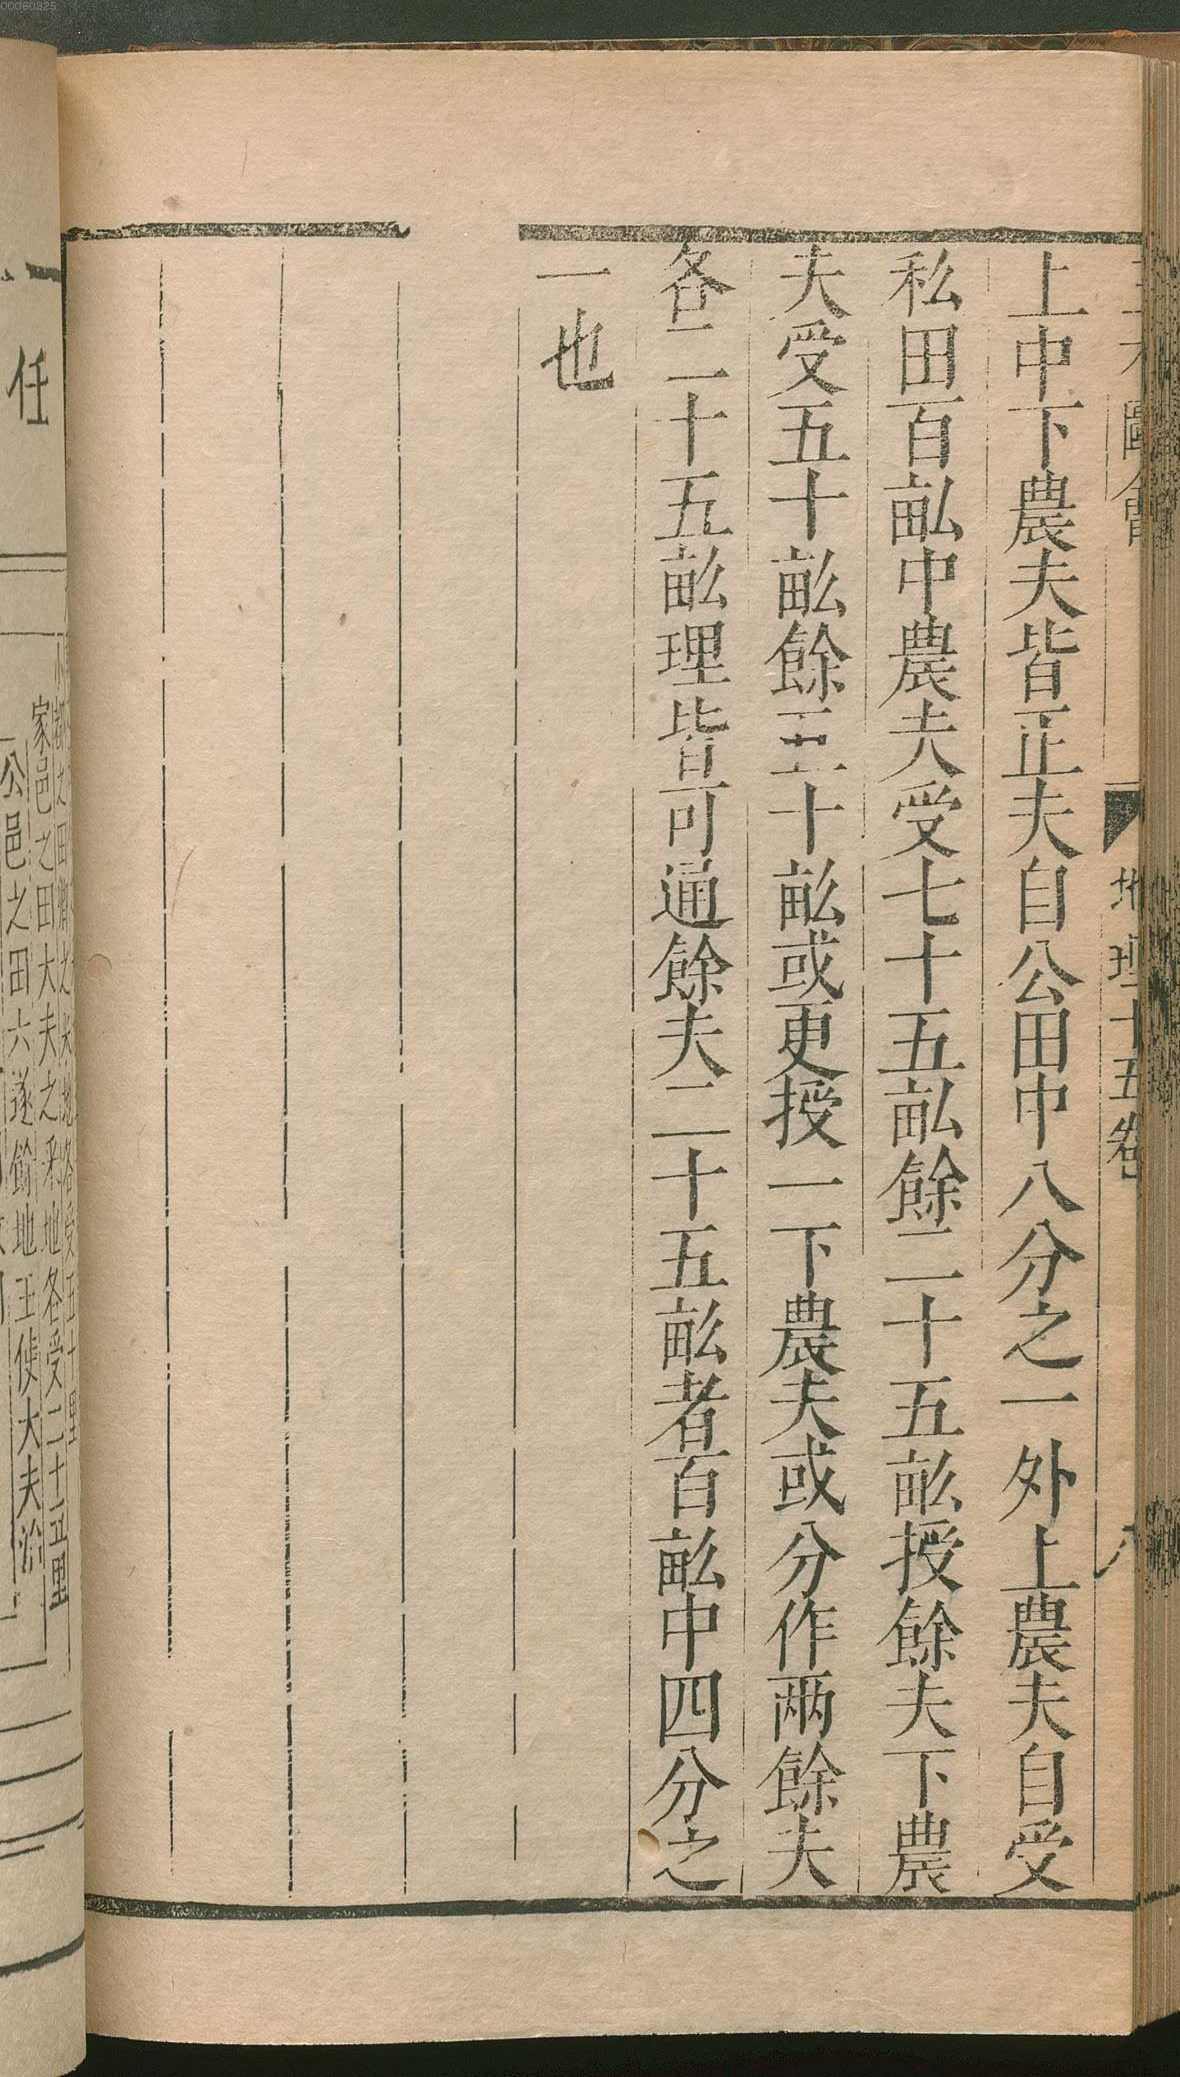 上中下農夫皆正夫自公田中八分之一外上農夫自受
私田百畝中農夫受七十五畝餘二十五畝授餘夫下農
夫受五十畝餘五十畝或更授一下農夫或分作兩餘夫
各二十五畝理皆可通餘夫二十五畝者百畝中四分之
一也
地理十五卷
八
任
家邑之田大夫之采地各受二十五里
公邑之田六遂餘地王使大夫治
00060825